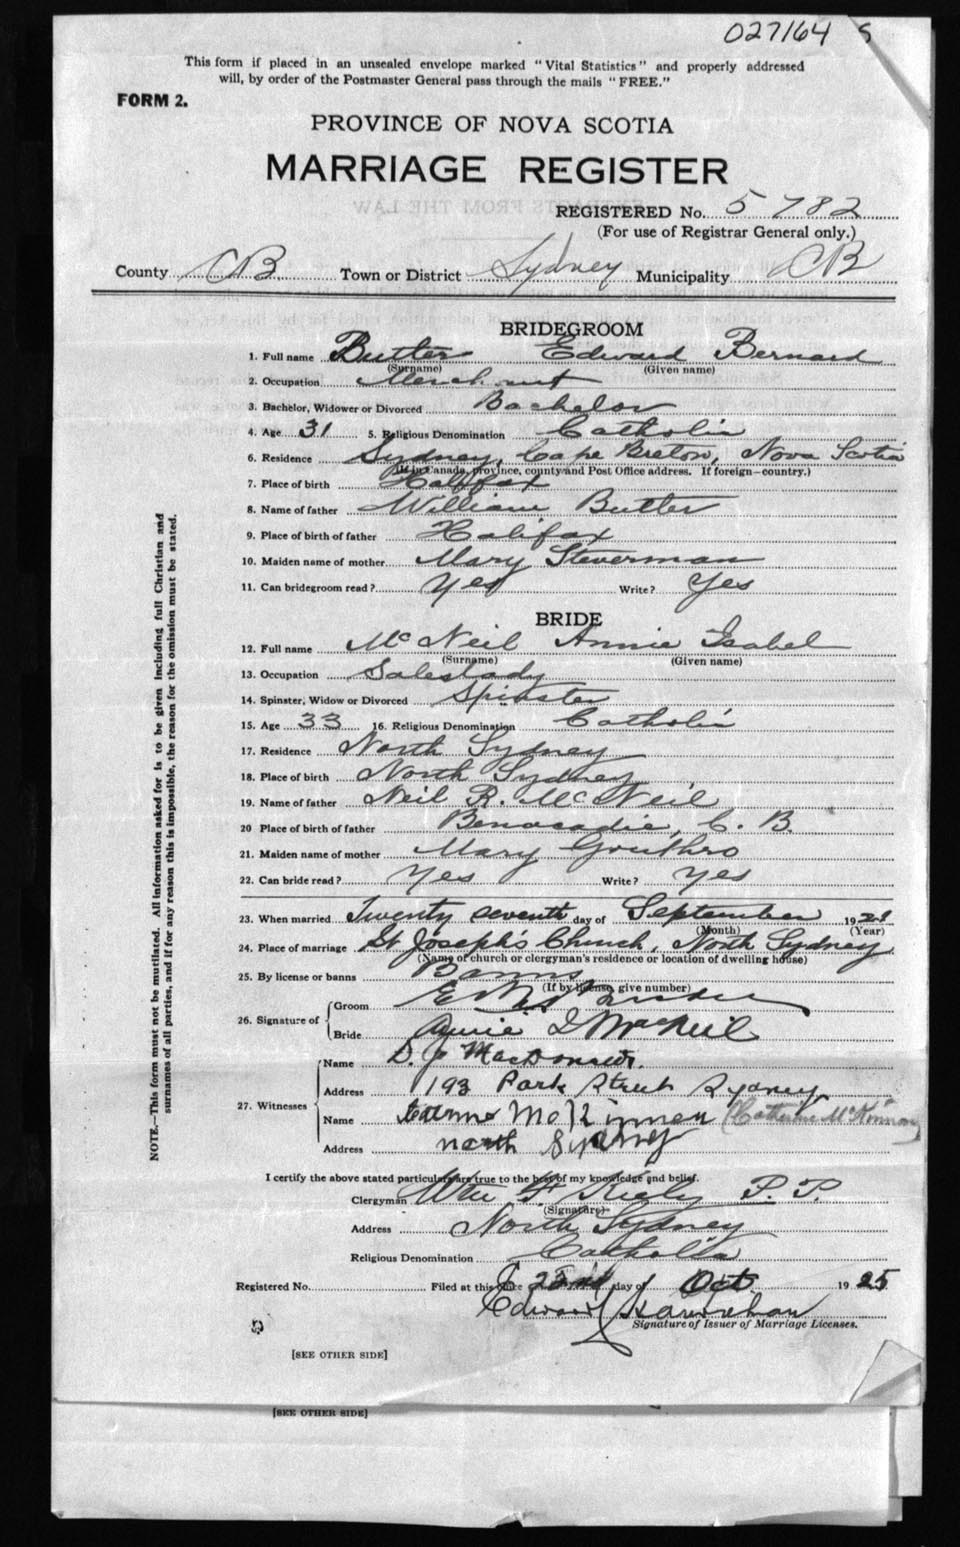 027164 S
This form if placed in an unsealed envelope marked "Vital Statistics" and properly addressed
will, by order of the Postmaster General pass through the mails "FREE."
FORM 2.
PROVINCE OF NOVA SCOTIA
MARRIAGE REGISTER
REGISTERED No. 5782
(For use of Registrar General only.)
County CB Town or District Sydney Municipality CB
BRIDEGROOM
1. Full name Butler Edward Bernard
(Surname) (Given name)
2. Occupation Merchant
3. Bachelor, Widower or Divorced Bachelor
4. Age 31 5. Religious Denomination Catholic
6. Residence Sydney, Cape Breton, Nova Scotia
(If in Canada, province, county and Post Office address. If foreign—country.)
7. Place of birth Halifax
8. Name of father William Butler
9. Place of birth of father Halifax
10. Maiden name of mother Mary Steverman
11. Can bridegroom read? Yes Write? Yes
BRIDE
12. Full name McNeil Annie Isabel
(Surname) (Given name)
13. Occupation Saleslady
14. Spinster, Widow or Divorced Spinster
15. Age 33 16. Religious Denomination Catholic
17. Residence North Sydney
18. Place of birth North Sydney
19. Name of father Neil R. McNeil
20 Place of birth of father Benacadie, C. B.
21. Maiden name of mother Mary Gouthro
22. Can bride read? Yes Write? Yes
23. When married Twenty seventh day of September 192
(Month) (Year)
24. Place of marriage St Joseph's Church, North Sydney
(Name of church or clergyman's residence or location of dwelling house)
25. By license or banns Banns
(If by license, give number)
26. Signature of
Groom
Bride Annie I MacNeil
27. Witnesses
Name D. J. MacDonald.
Address 193 Park Street Sydney
Name McKinnon (Catherine McKinnon)
Address North Sydney
I certify the above stated particulars are true to the best of my knowledge and belief.
Clergyman Wm F Kiely P. P.
(Signature)
Address North Sydney
Religious Denomination Catholic
Registered No. Filed at this office 22nd day of Oct 1925
Edward Hanrahan
Signature of Issuer of Marriage Licenses.
[SEE OTHER SIDE]
[SEE OTHER SIDE]
NOTE.—This form must not be mutilated. All information asked for is to be given including full Christian and
surnames of all parties, and if for any reason this is impossible, the reason for the omission must be stated.